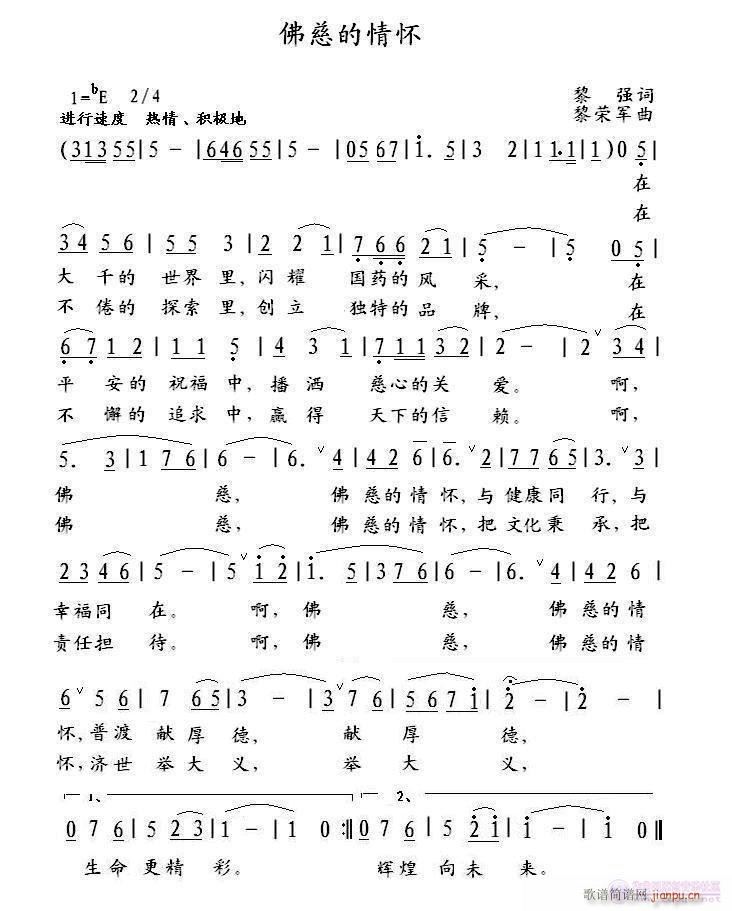 佛慈的情怀
1=ᵇE 2/4 黎 强词
进行速度 热情、积极地 黎荣军曲
(31355|5 -|64655|5 -|0567|1. 5|3 2|11·1|1)0 5|
在
在
34 56|55 3|22 1|766 21|5 -|5 05|
大千的 世界里,闪耀 国药的风 采, 在
不倦的 探索里,创立 独特的品 牌, 在
67 12|11 5|4 3 1|711 32|2 -|2ᵛ 34|
平安的 祝福中,播洒 慈心的关 爱。 啊,
不懈的 追求中,赢得 天下的信 赖。 啊,
5. 3|1 76|6 -|6.ᵛ 4|42 6|6.ᵛ 2|77 65|3.ᵛ 3|
佛 慈, 佛慈的情怀,与健康同行,与
佛 慈, 佛慈的情怀,把文化秉承,把
23 46|5 -|5ᵛ 12|1. 5|3 76|6 -|6.ᵛ 5|55 3|
幸福同在。 啊,佛 慈, 佛慈的情
责任担待。 啊,佛 慈, 佛慈的情
6ᵛ 56|7 65|3 -|3ᵛ 76|567 1|2 -|2 0|
怀,普渡献厚德, 献厚德,
怀,济世举大义, 举大义,
1、 2、
076|5 23|1 -|1 0:‖076|5 21|1 -|1 0‖
生命更精彩。 辉煌向未来。
歌谱简谱网
jianpu.cn